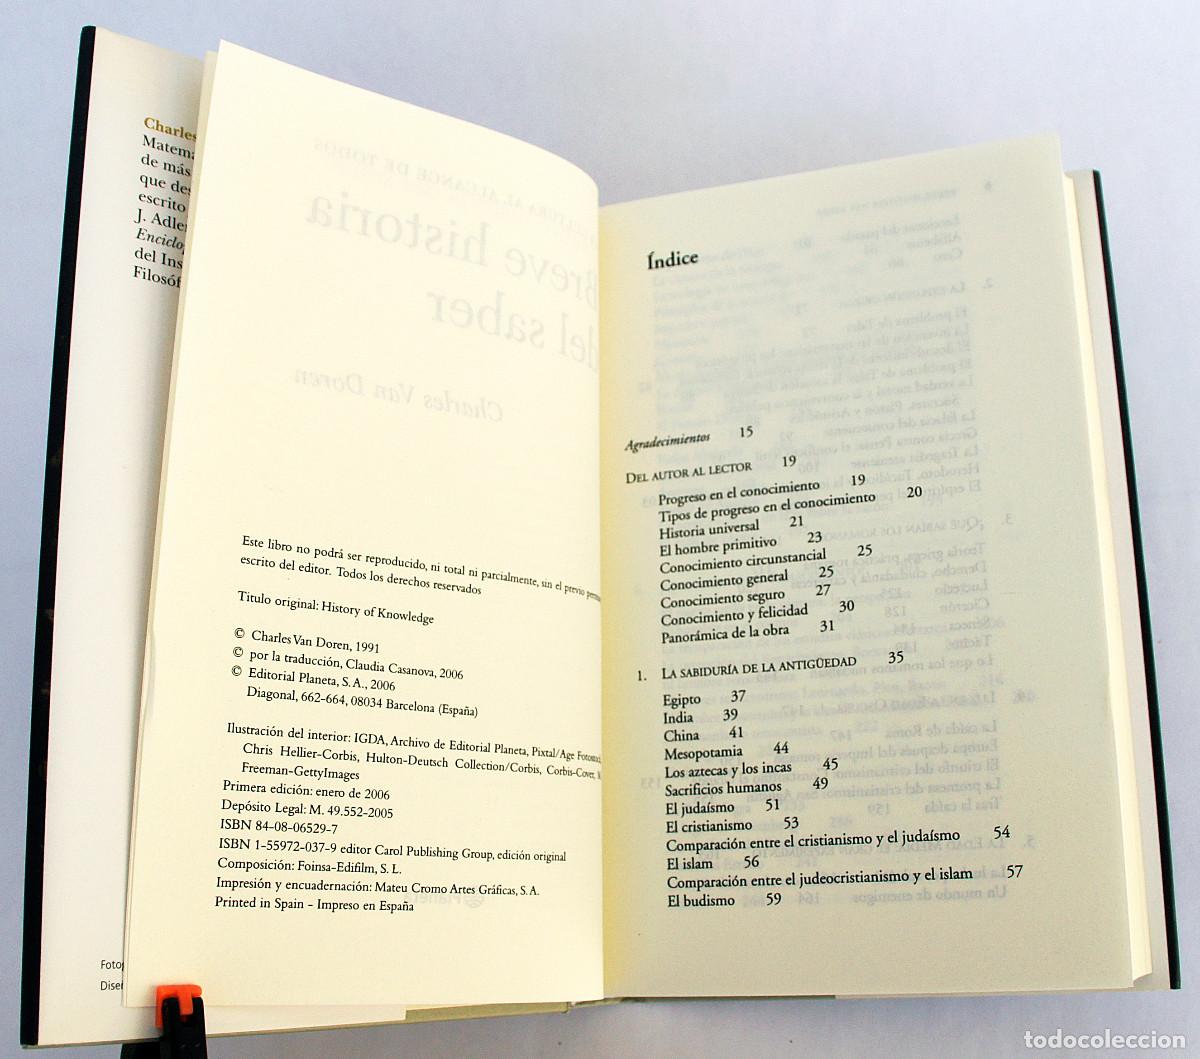 Charles
Matema
de más
que des
escrito
J. Adle
Enciclo
del Ins
Filosóf
Fotog
Dise
Breve historia
del saber
Charles Van Doren
Este libro no podrá ser reproducido, ni total ni parcialmente, sin el previo
escrito del editor. Todos los derechos reservados
Título original: History of Knowledge
© Charles Van Doren, 1991
© por la traducción, Claudia Casanova, 2006
© Editorial Planeta, S. A., 2006
Diagonal, 662-664, 08034 Barcelona (España)
Ilustración del interior: IGDA, Archivo de Editorial Planeta, Pixtal/Age
Chris Hellier-Corbis, Hulton-Deutsch Collection/Corbis, Corbis-Cover,
Freeman-GettyImages
Primera edición: enero de 2006
Depósito Legal: M. 49.552-2005
ISBN 84-08-06529-7
ISBN 1-55972-037-9 editor Carol Publishing Group, edición original
Composición: Foinsa-Edifilm, S. L.
Impresión y encuadernación: Mateu Cromo Artes Gráficas, S. A.
Printed in Spain - Impreso en España
Índice
Agradecimientos 15
DEL AUTOR AL LECTOR 19
Progreso en el conocimiento 19
Tipos de progreso en el conocimiento 20
Historia universal 21
El hombre primitivo 23
Conocimiento circunstancial 25
Conocimiento general 25
Conocimiento seguro 27
Conocimiento y felicidad 30
Panorámica de la obra 31
1. LA SABIDURÍA DE LA ANTIGÜEDAD 35
Egipto 37
India 39
China 41
Mesopotamia 44
Los aztecas y los incas 45
Sacrificios humanos 49
El judaísmo 51
El cristianismo 53
Comparación entre el cristianismo y el judaísmo 54
El islam 56
Comparación entre el judeocristianismo y el islam 57
El budismo 59
todocoleccion